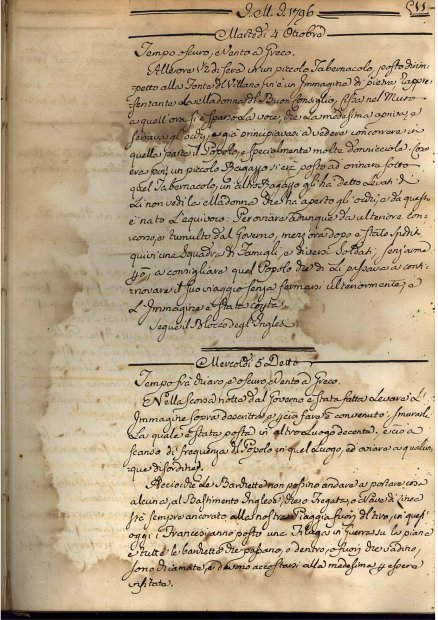 J. M. J. 1796
Martedì 4 Ottobre
Tempo oscuro, e Vento a Greco.
All'ore 1/2 di sera in un piccolo Tabernacolo, posto dirim,
petto alla Fonte del Villano, vi è un Immagine di pietra rappre
sentante la Madonna del Buon Consiglio, fissa nel Muro
a quell'ora si è sparsa la voce, che la medesima apriva, e
serrava gl'occhi, e già principiavasi a vedere concorrere in
quella parte il Popolo, e specialmente molte donnicciole.
un piccolo Ragazzo si era posto ad orinare sotto
quel Tabernacolo, un altro Ragazzo gli ha detto Levati di
Lì non vedi la Madonna che ha aperto gli occhi, e da questo
è nato l'equivoco. Per ovviare adunque da ulteriore con:
corso, e tumulto dal Governo, mezz'ora dopo è stato spedito
quivi una Squadra di Famigli, e diversi Soldati, senz'arme
a consigliare quel Popolo che di Lì passava a conti
novare il suo viaggio senza fermarsi ulteriormente; e
L'Immagine è stata
Segue il Blocco degl'Inglesi.
Mercoldì 5. Detto
Tempo frà chiaro, e oscuro, e Vento a Greco.
Nella scorsa notte dal Governo è stata fatta levare L'
Immagine sopra descritta, e ciò farà convenuto: smurarla
La quale è stata posta in altro Luogo decente, e ciò a
scanso di frequenza di Popolo in quel Luogo, ed ovviare a qualun
que disordine.
Acciò che le Barchette non possino andare a portare cosa
alcuna, al Bastimento Inglese, che o Fregata, o Nave di Linea
stà sempre ancorato alla nostra Piaggia fuori di tiro, in quest'
oggi i Francesi anno posto una Filuga in Guerra su le piane
e tutte le barchette che passano, o dentro, o fuori che vadino,
sono chiamate, e devono accostarsi alla medesima p essere
visitate.